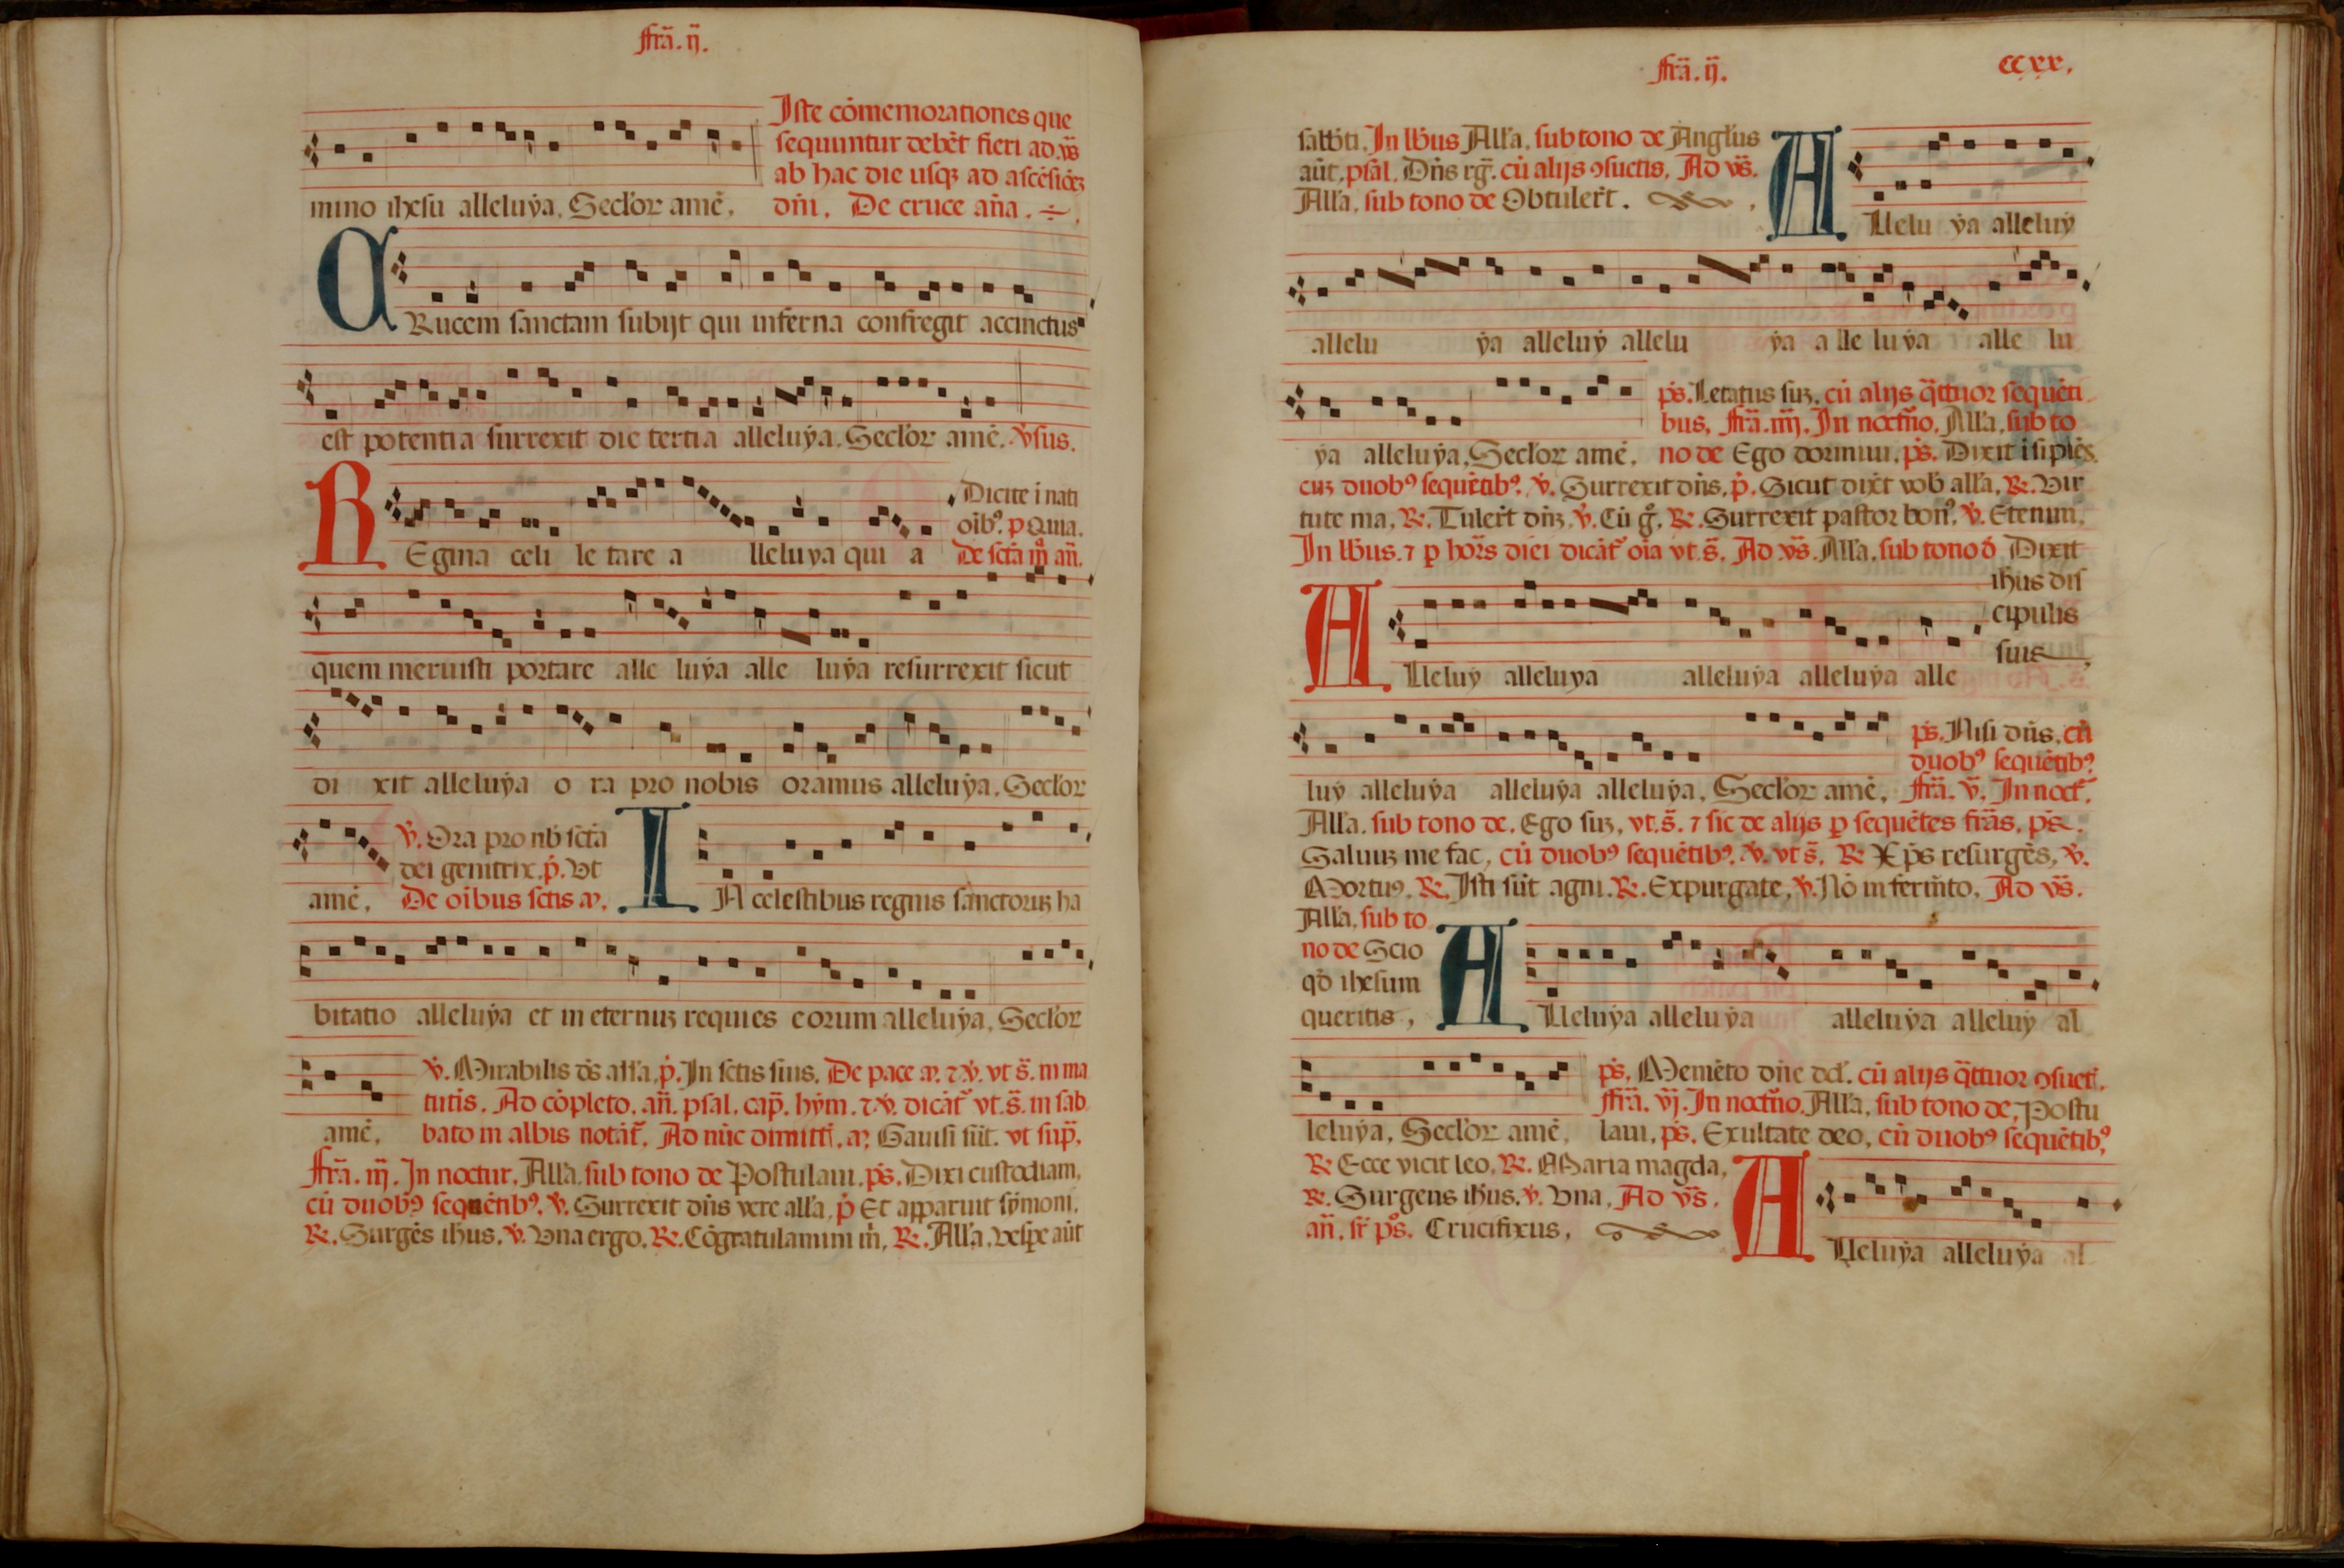 fr̄a. ij.
Iste cōmemorationes que
sequuntur debēt fieri ad vs̄
ab hac die usqȝ ad ascēsiōȝ
mino ihesu alleluya. Seclor amē. dn̄i. De cruce an̄a.
CRucem sanctam subijt qui inferna confregit accinctus
est potentia surrexit die tertia alleluya. Seclor amē. v̇sus.
Dicite i nati
oībꝰ. p Quia.
REgina celi le tare a lleluya qui a De sctā mͣ an̄.
quem meruisti portare alle luya alle luya resurrexit sicut
di xit alleluya o ra pro nobis oramus alleluya. Seclor
v̇. Ora pro nb̄ sctā
dei genitrix. p̄. Vt
amē. De oībus sctis a. IN celestibus regnis sanctoruȝ ha
bitatio alleluya et in eternuȝ requies eorum alleluya. Seclor
v̇. Mirabilis ds̄ alla. p̄. In sctis suis. De pace a. ⁊ v̇. vt s̄. in ma
tutis. Ad cōpleto. an̄. psal. cap̄. hym. ⁊ v̇. dicāt̄ vt. s̄. in sab
amē. bato in albis notāt̄. Ad nūc dimitt. a. Gauisi sūt. vt sup̄.
fr̄a. iij. In noctur. Alla. sub tono de Postulaui. ps̄. Dixi custodiam.
cū duobꝰ sequētibꝰ. v̇. Surrexit dn̄s vere alla. p̄ Et apparuit symoni.
R. Surgēs ihus. v̇. Vna ergo. R. Cōgratulamini m̄. R. Alla. vespe aūt
fr̄a. ij. ccxx.
sabbti. In lb̄us Alla. sub tono de Angl̄us
aūt. psal. Dn̄s rḡ. cū alijs ꝯsuetis. Ad vs̄.
Alla. sub tono de Obtulert̄.
ALlelu ya alleluy
allelu ya alleluy allelu ya a lle lu ya alle lu
ps̄. Letatus suȝ. cū alijs q̄ttuor sequēti
bus. fr̄a. iiij. In noctn̄o. Alla. sub to
ya alleluya. Seclor amē. no de Ego dormiui. ps̄. Dixit īsipiēs.
cuȝ duobꝰ sequētibꝰ. v̇. Surrexit dn̄s. p̄. Sicut dixt̄ vob̄ alla. R. Vir
tute ma. R. Tulert̄ dn̄ȝ. v̇. Cū gͦ. R. Surrexit pastor bonꝰ. v̇. Etenim.
In lb̄us. ⁊ p hor̄s diei dicāt̄ oīa vt. s̄. Ad vs̄. Alla. sub tono d̄ Dixit
ihus dis
cipulis
suis
ALleluy alleluya alleluya alleluya alle
ps̄. Nisi dn̄s. cū
duobꝰ sequētibꝰ
luy alleluya alleluya alleluya. Seclor amē. fr̄a. v̄. In noct̄.
Alla. sub tono de. Ego suȝ. vt. s̄. ⁊ sic de alijs p sequētes frās. ps̄.
Saluuȝ me fac. cū duobꝰ sequētibꝰ. v̇. vt s̄. R. Xp̄s resurgēs. v̇.
Mortuꝰ. R. Isti sūt agni. R. Expurgate. v̇. Nō in fermt̄o. Ad vs̄.
Alla. sub to
no de Scio
qd̄ ihesum
queritis.
ALleluya alleluya alleluya alleluy al
ps̄. Memēto dn̄e dd̄. cū alijs q̄ttuor ꝯsuet̄.
fr̄a. vj. In noctn̄o. Alla. sub tono de. Postu
leluya. Seclor amē. laui. ps̄. Exultate deo. cū duobꝰ sequētibꝰ
R. Ecce vicit leo. R. Maria magda.
R. Surgens ihus. v̇. Vna. Ad vs̄.
an̄. sr̄ ps̄. Crucifixus.
ALleluya alleluya al